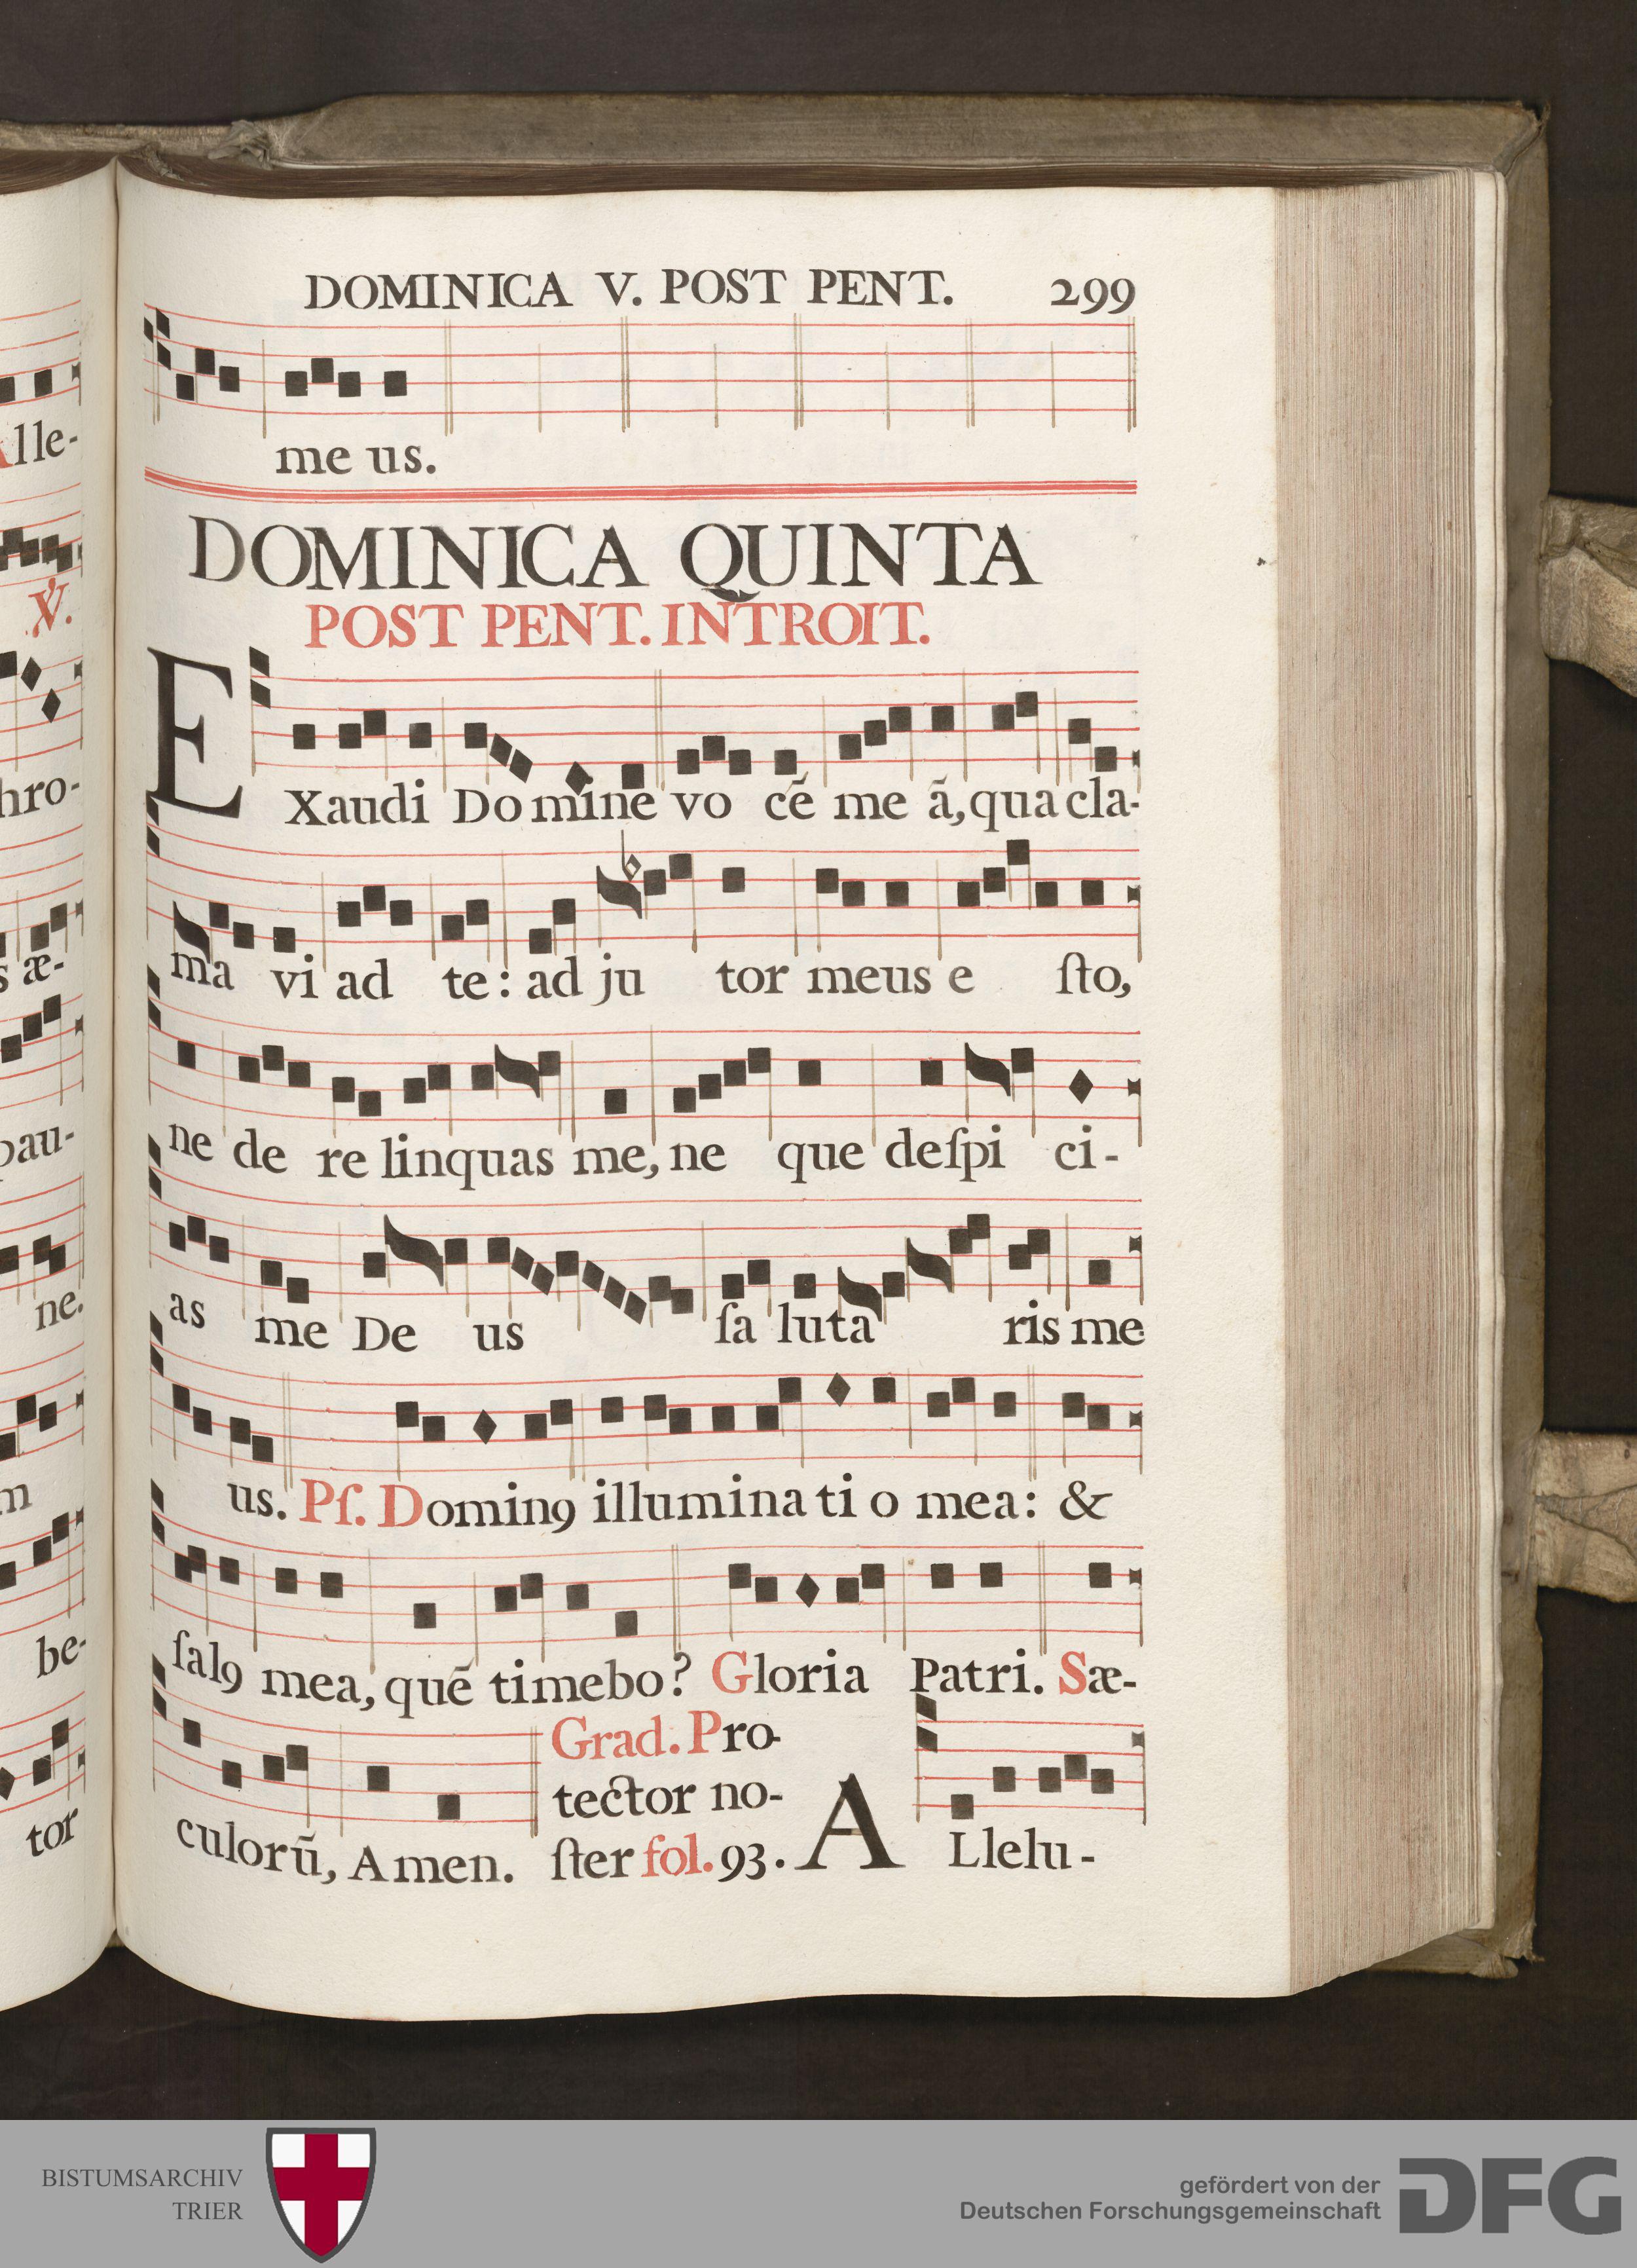 DOMINICA V. POST PENT. 299
me us.
DOMINICA QUINTA
POST PENT. INTROIT.
EXaudi Domine vo cē me ā, qua cla-
ma vi ad te: ad ju tor meus e ſto,
ne de re linquas me, ne que deſpi ci-
as me De us ſa luta ris me
us. Pſ. Dominꝯ illumina ti o mea: &
ſalꝯ mea, quē timebo? Gloria Patri. Sæ-
culorū, Amen.
Grad. Pro-
tector no-
ſter fol. 93.
ALlelu-
lle-
℣.
hro-
s æ-
pau-
ne.
m
be-
tor
BISTUMSARCHIV
TRIER
gefördert von der
Deutschen Forschungsgemeinschaft
DFG